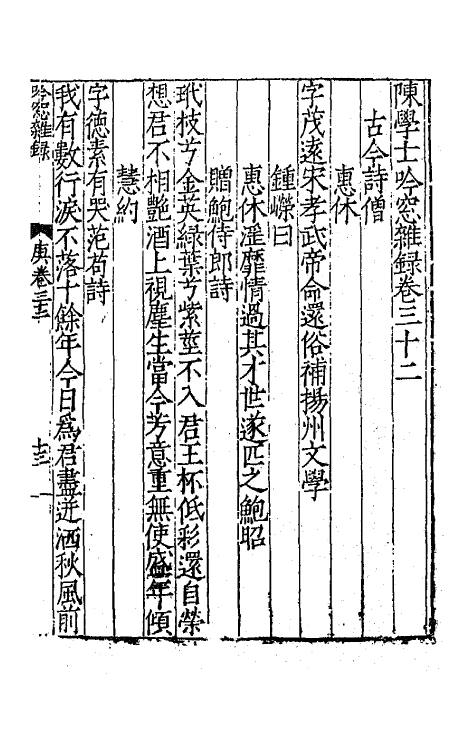 陳學士吟窓雜録卷三十二
古今詩僧
惠休
字茂遠宋孝武帝命還俗補揚州文學
鍾嶸曰
惠休淫靡情過其才世遂匹之鮑昭
贈鮑侍郎詩
玳枝兮金英緑葉兮紫莖不入君王杯低彩還自榮
想君不相艷酒上視塵生當今芳意重無使盛年傾
慧約
字德素有哭范荀詩
我有數行淚不落十餘年今日為君盡迸洒秋風前
吟窓雜録
庚卷三十二